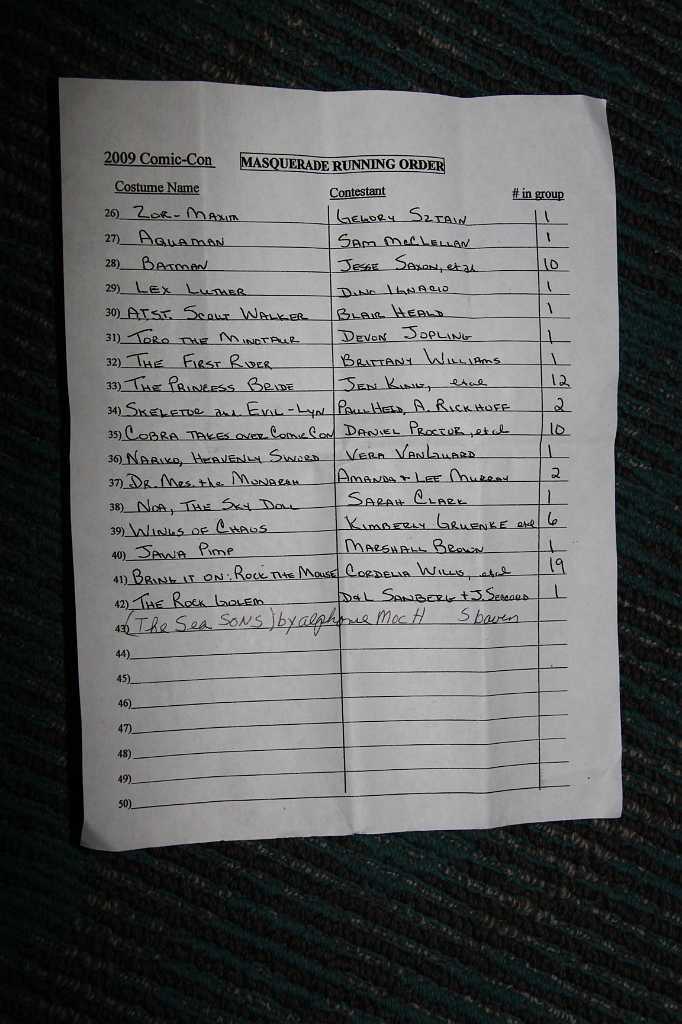 2009 Comic-Con MASQUERADE RUNNING ORDER
Costume Name Contestant # in group
26) ZOR-MAXIM GEGORY SZTAIN 1
27) AQUAMAN SAM MCCLELLAN 1
28) BATMAN JESSE SAXON, et al 10
29) LEX LUTHER DINO IGNACIO 1
30) AT.ST. SCOUT WALKER BLAIR HEALD 1
31) TORO THE MINOTAUR DEVON JOPLING 1
32) THE FIRST RIDER BRITTANY WILLIAMS 1
33) THE PRINCESS BRIDE JEN KING, et al 12
34) SKELETOR and EVIL-LYN PAUL HELD, A. RICKHOFF 2
35) COBRA TAKES OVER COMIC CON DANIEL PROCTOR, et al 10
36) NARIKO, HEAVENLY SWORD VERA VANGUARD 1
37) DR. MRS. the MONARCH AMANDA + LEE MURRAY 2
38) NOA, THE SKY DOLL SARAH CLARK 1
39) WINGS OF CHAOS KIMBERLY GRUENKE et al 6
40) JAWA PIMP MARSHALL BROWN 1
41) BRING IT ON: ROCK THE MOUSE CORDELIA WILLIS, et al 19
42) THE ROCK GOLEM D+L SANBERG + J. 1
43) (The Sea SONS) by alphonie MocH
44)
45)
46)
47)
48)
49)
50)